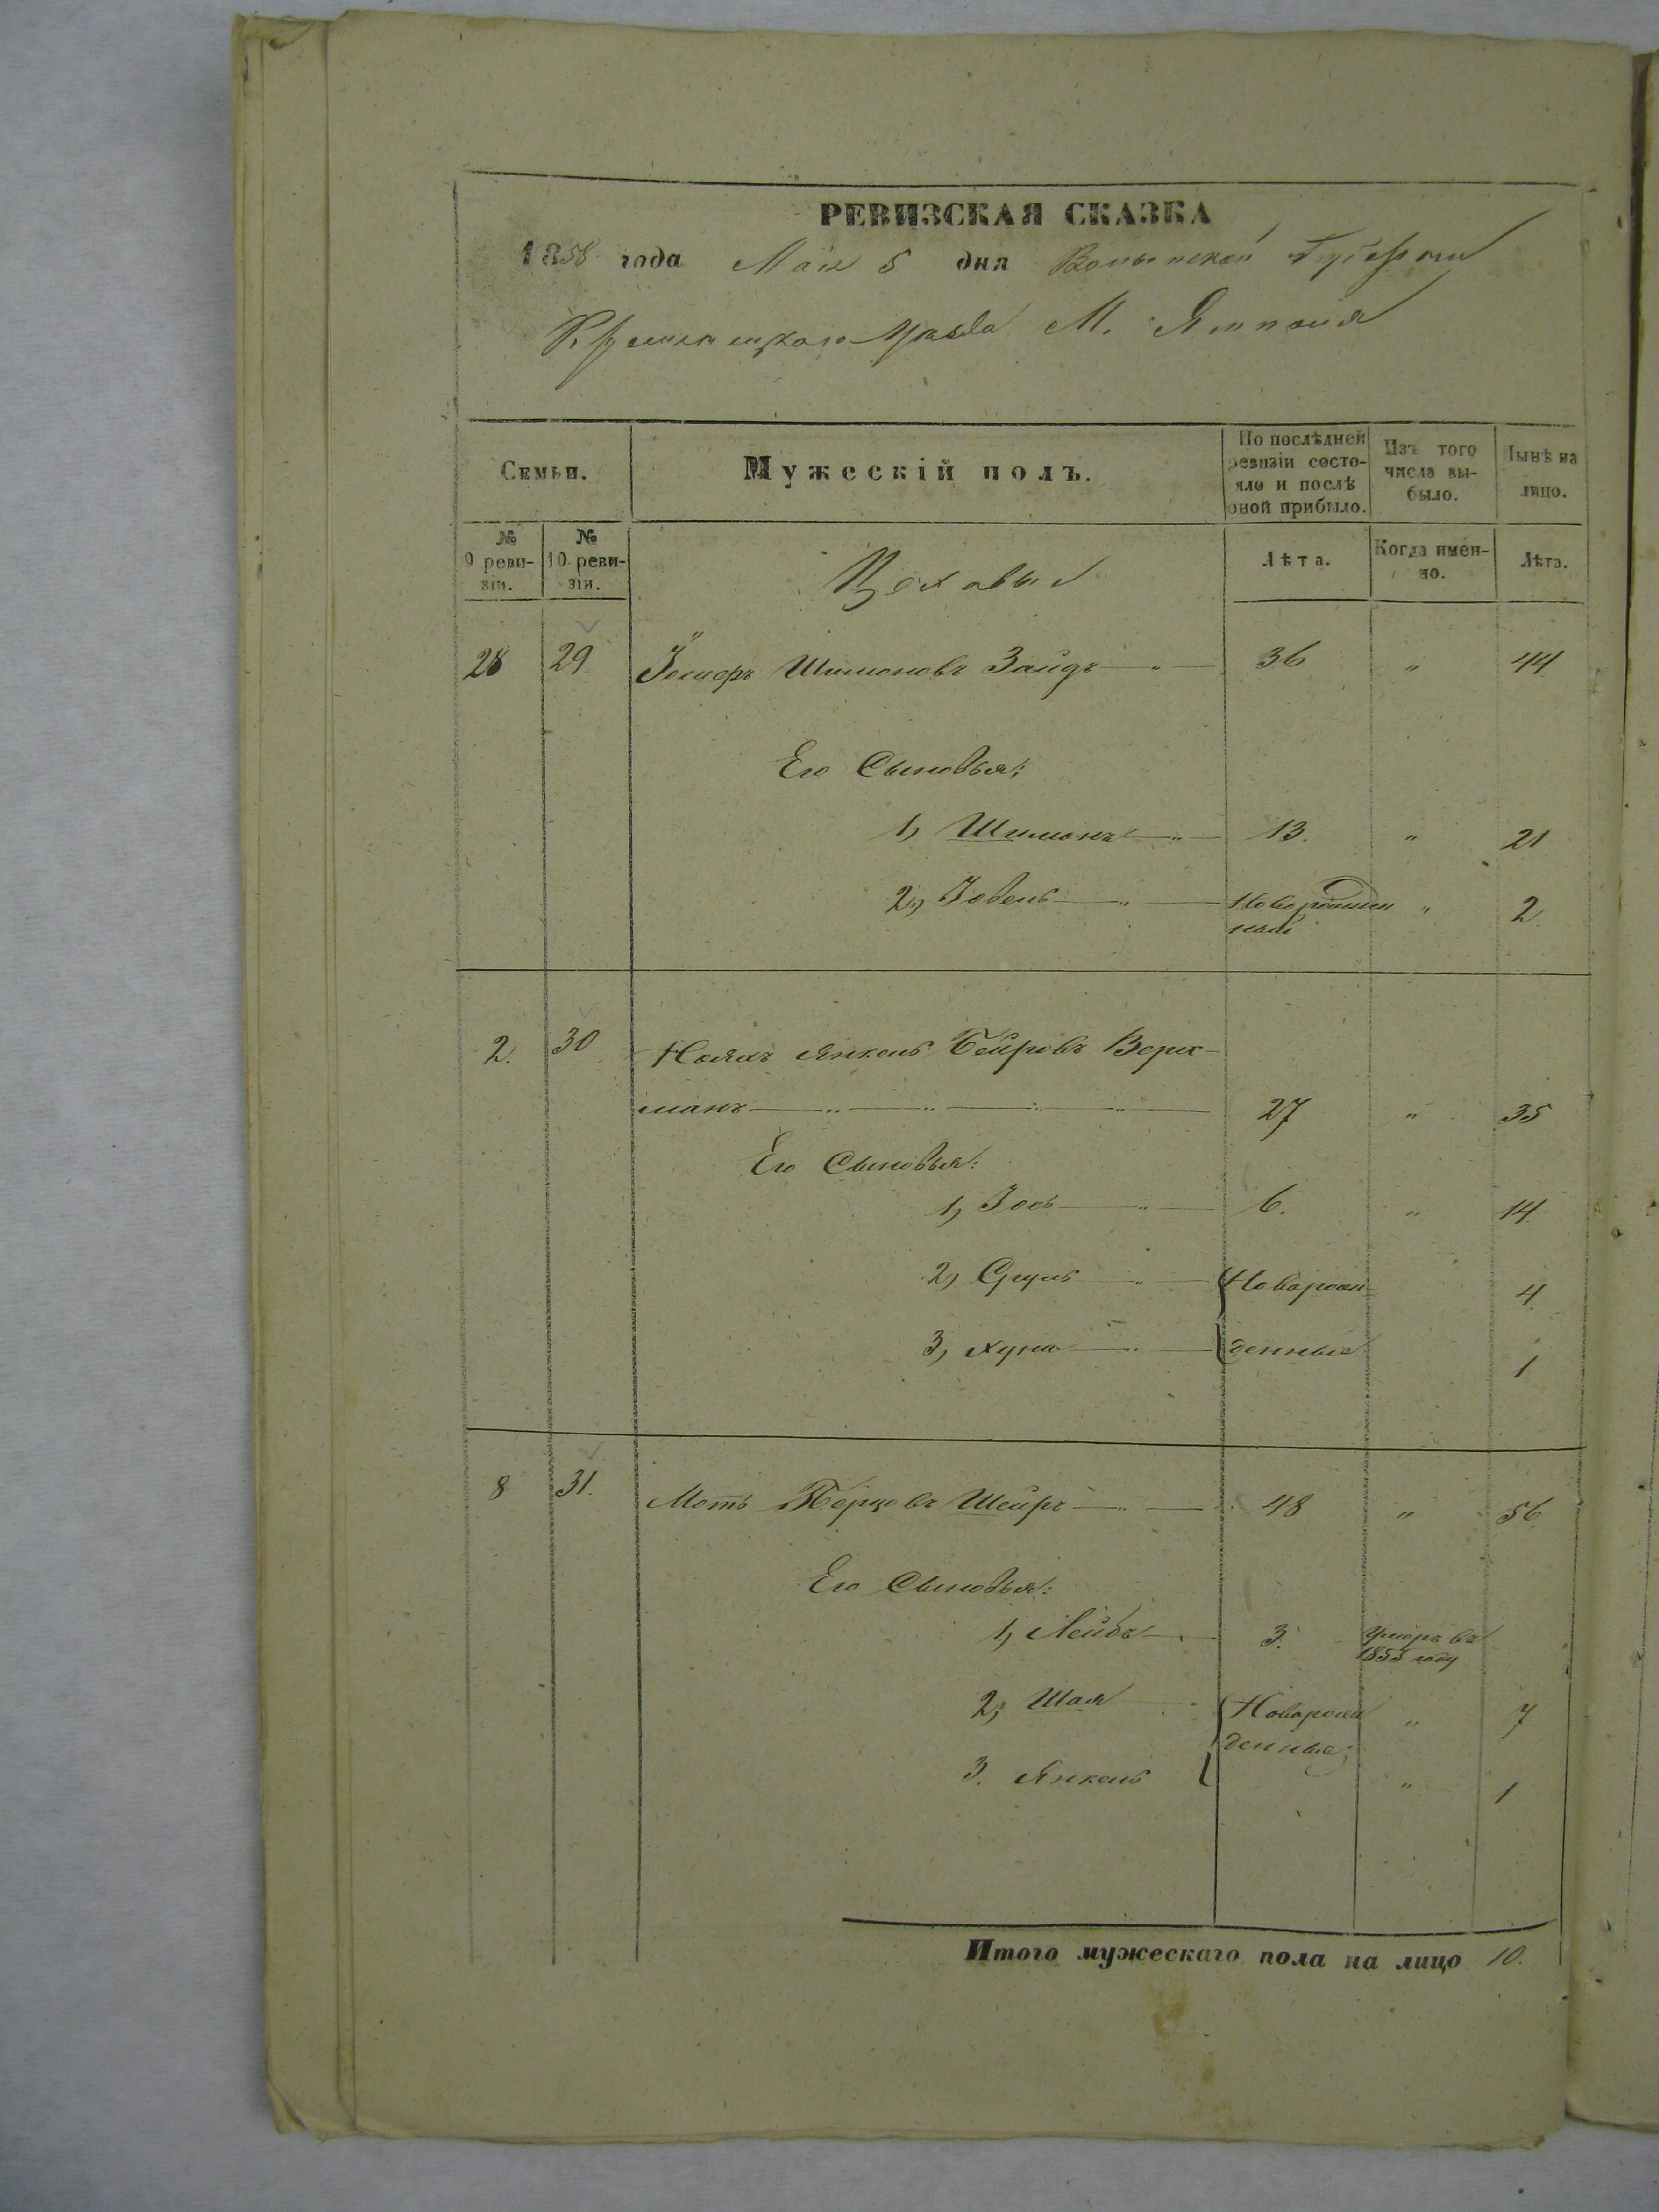 РЕВИЗСКАЯ СКАЗКА
1858 года Мая 5 дня Волынской Губернии
Кременецкаго Уѣзда М. Ямполя
Семьи.
Мужескій полъ.
По послѣдней ревизіи состояло и послѣ оной прибыло.
Изъ того числа выбыло.
Нынѣ на лицо.
№ 9 ревизіи.
№ 10 ревизіи.
Цеховые
Лѣта.
Когда именно.
Лѣта.
28 29 Шимоновъ Зайдъ 36 " 44
Его Сыновья:
1, Шимонъ 13. " 21
2, Новорожденный " 2
2. 30 Янкель Бейровъ
манъ 27 " 35
Его Сыновья:
1, Іось 6. " 14.
2, Сруль Новорож- 4
3, Хуна денные 1
8 31. Моть Берковъ Шейръ 48 " 56
Его Сыновья:
1, Лейба 3. умеръ въ 1855 году
2, Шая Новорож " 7
денные
3. Янкель " 1
Итого мужескаго пола на лицо 10.